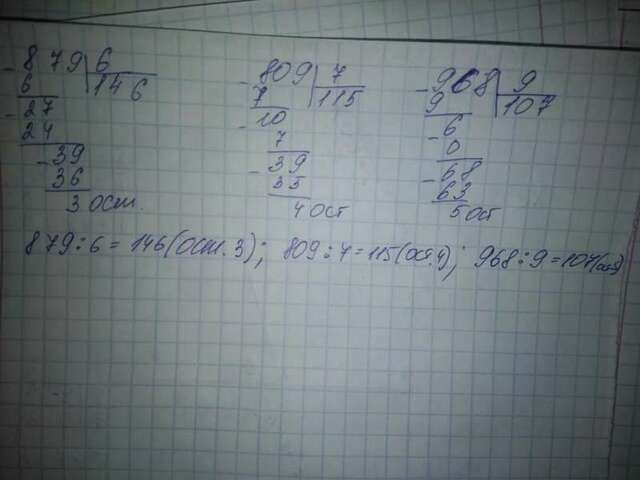 - 879 | 6
6 | 146
- 27
24
- 39
36
3 ост.
- 809 | 7
7 | 115
- 10
7
- 39
35
4 ост
- 968 | 9
9 | 107
- 6
0
- 68
63
5 ост
879:6=146(ост. 3); 809:7=115(ост.4); 968:9=107(ост5)